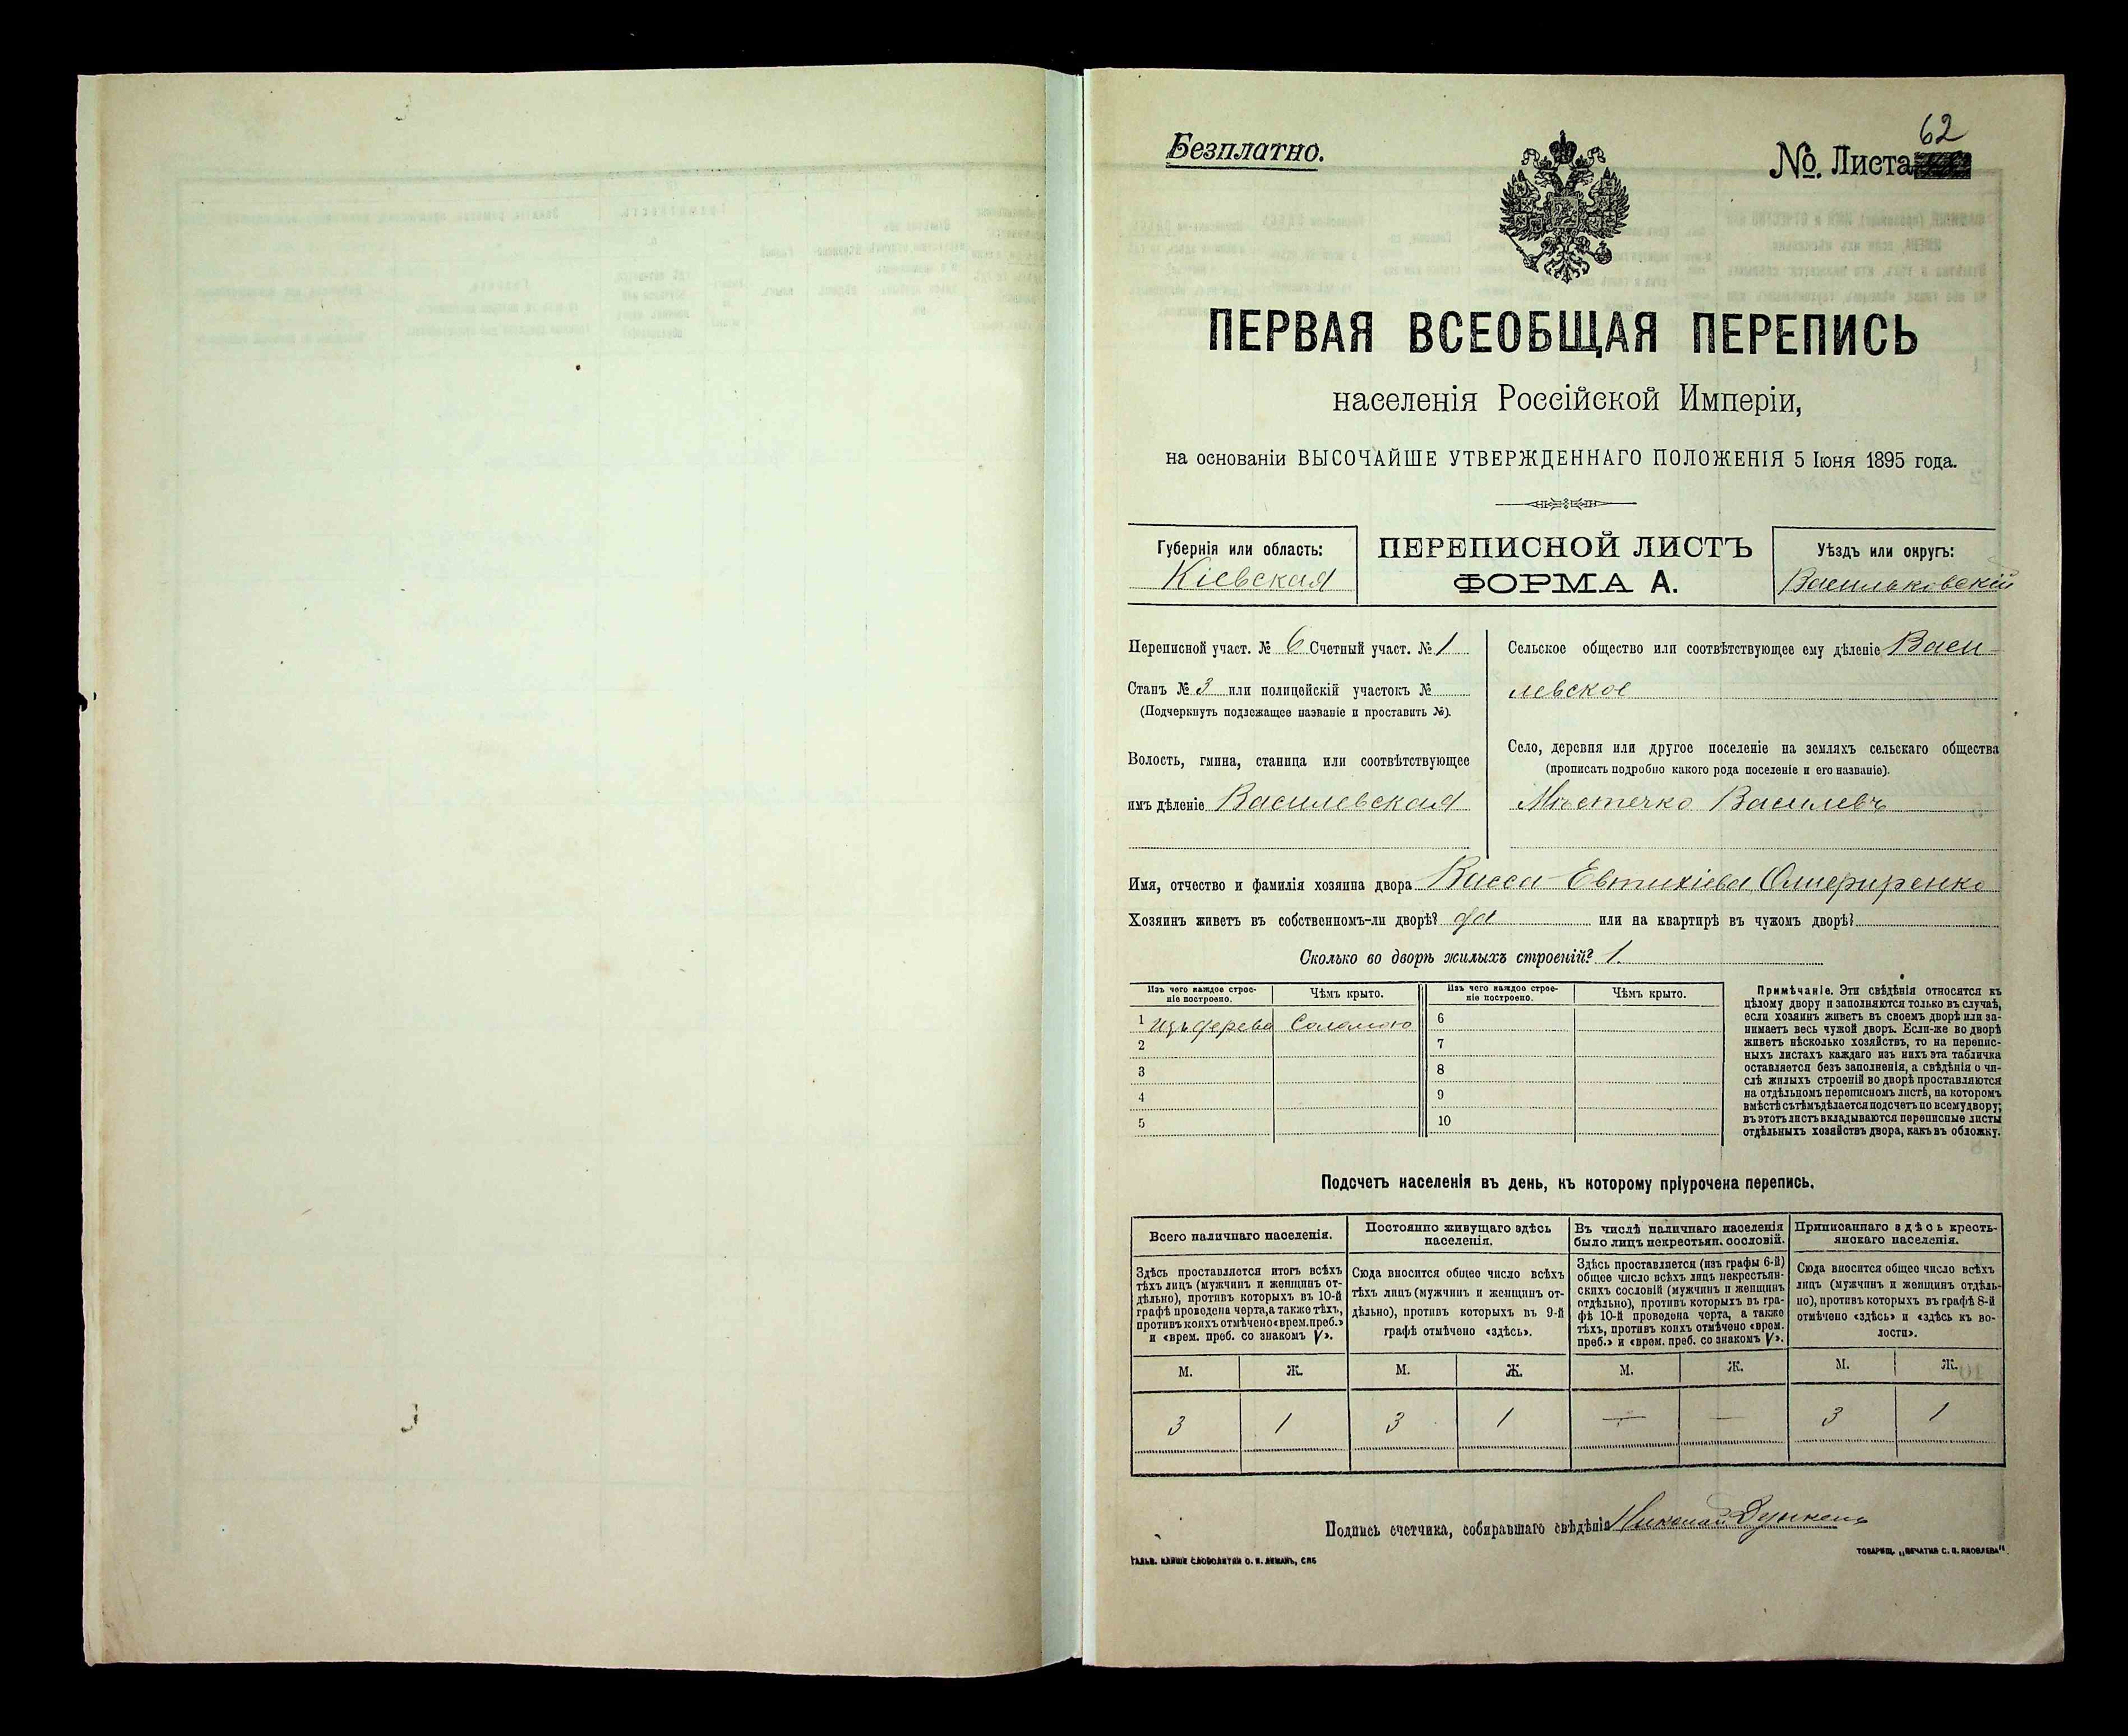 Безплатно.
62
№. Листа
ПЕРВАЯ ВСЕОБЩАЯ ПЕРЕПИСЬ
населенія Россійской Имперіи,
на основаніи ВЫСОЧАЙШЕ УТВЕРЖДЕННАГО ПОЛОЖЕНІЯ 5 Іюня 1895 года.
Губернія или область:
Кіевская
ПЕРЕПИСНОЙ ЛИСТЪ
ФОРМА А.
Уѣздъ или округъ:
Васильковскій
Переписной участ. № 6 Счетный участ. № 1
Станъ № 3 или полицейскій участокъ №
(Подчеркнуть подлежащее названіе и проставить №).
Волость, гмина, станица или соотвѣтствующее
имъ дѣленіе Василевская
Сельское общество или соотвѣтствующее ему дѣленіе Васи-
левское
Село, деревня или другое поселеніе на земляхъ сельскаго общества
(прописать подробно какого рода поселеніе и его названіе).
Мѣстечко Василевъ
Имя, отчество и фамилія хозяина двора Васса Евтихіева
Хозяинъ живетъ въ собственномъ-ли дворѣ? да или на квартирѣ въ чужомъ дворѣ?
Сколько во дворѣ жилыхъ строеній? 1.
Изъ чего каждое строе-
ніе построено.
Чѣмъ крыто.
Изъ чего каждое строе-
ніе построено.
Чѣмъ крыто.
1 Изъ дерева Соломою 6
2 7
3 8
4 9
5 10
Примѣчаніе. Эти свѣдѣнія относятся къ
цѣлому двору и заполняются только въ случаѣ,
если хозяинъ живетъ въ своемъ дворѣ или за-
нимаетъ весь чужой дворъ. Если-же во дворѣ
живетъ нѣсколько хозяйствъ, то на перепис-
ныхъ листахъ каждаго изъ нихъ эта табличка
оставляется безъ заполненія, а свѣдѣнія о чи-
слѣ жилыхъ строеній во дворѣ проставляются
на отдѣльномъ переписномъ листѣ, на которомъ
вмѣстѣ съ тѣмъ дѣлается подсчетъ по всему двору;
въ этотъ листъ вкладываются переписные листы
отдѣльныхъ хозяйствъ двора, какъ въ обложку.
Подсчетъ населенія въ день, къ которому пріурочена перепись.
Всего наличнаго населенія.
Здѣсь проставляется итогъ всѣхъ
тѣхъ лицъ (мужчинъ и женщинъ от-
дѣльно), противъ которыхъ въ 10-й
графѣ проведена черта, а также тѣхъ,
противъ коихъ отмѣчено «врем. преб.»
и «врем. преб. со знакомъ V».
Постоянно живущаго здѣсь
населенія.
Сюда вносится общее число всѣхъ
тѣхъ лицъ (мужчинъ и женщинъ от-
дѣльно), противъ которыхъ въ 9-й
графѣ отмѣчено «здѣсь».
Въ числѣ наличнаго населенія
было лицъ некрестьян. сословій.
Здѣсь проставляется (изъ графы 6-й)
общее число всѣхъ лицъ некрестьян-
скихъ сословій (мужчинъ и женщинъ
отдѣльно), противъ которыхъ въ гра-
фѣ 10-й проведена черта, а также
тѣхъ, противъ коихъ отмѣчено «врем.
преб.» и «врем. преб. со знакомъ V».
Приписаннаго здѣсь кресть-
янскаго населенія.
Сюда вносится общее число всѣхъ
лицъ (мужчинъ и женщинъ отдѣль-
но), противъ которыхъ въ графѣ 8-й
отмѣчено «здѣсь» и «здѣсь къ во-
лости».
М. Ж. М. Ж. М. Ж. М. Ж.
3 1 3 1 — — 3 1
Подпись счетчика, собиравшаго свѣдѣнія Николай
ТОВАРИЩ. „ПЕЧАТНЯ С. П. ЯКОВЛЕВА“